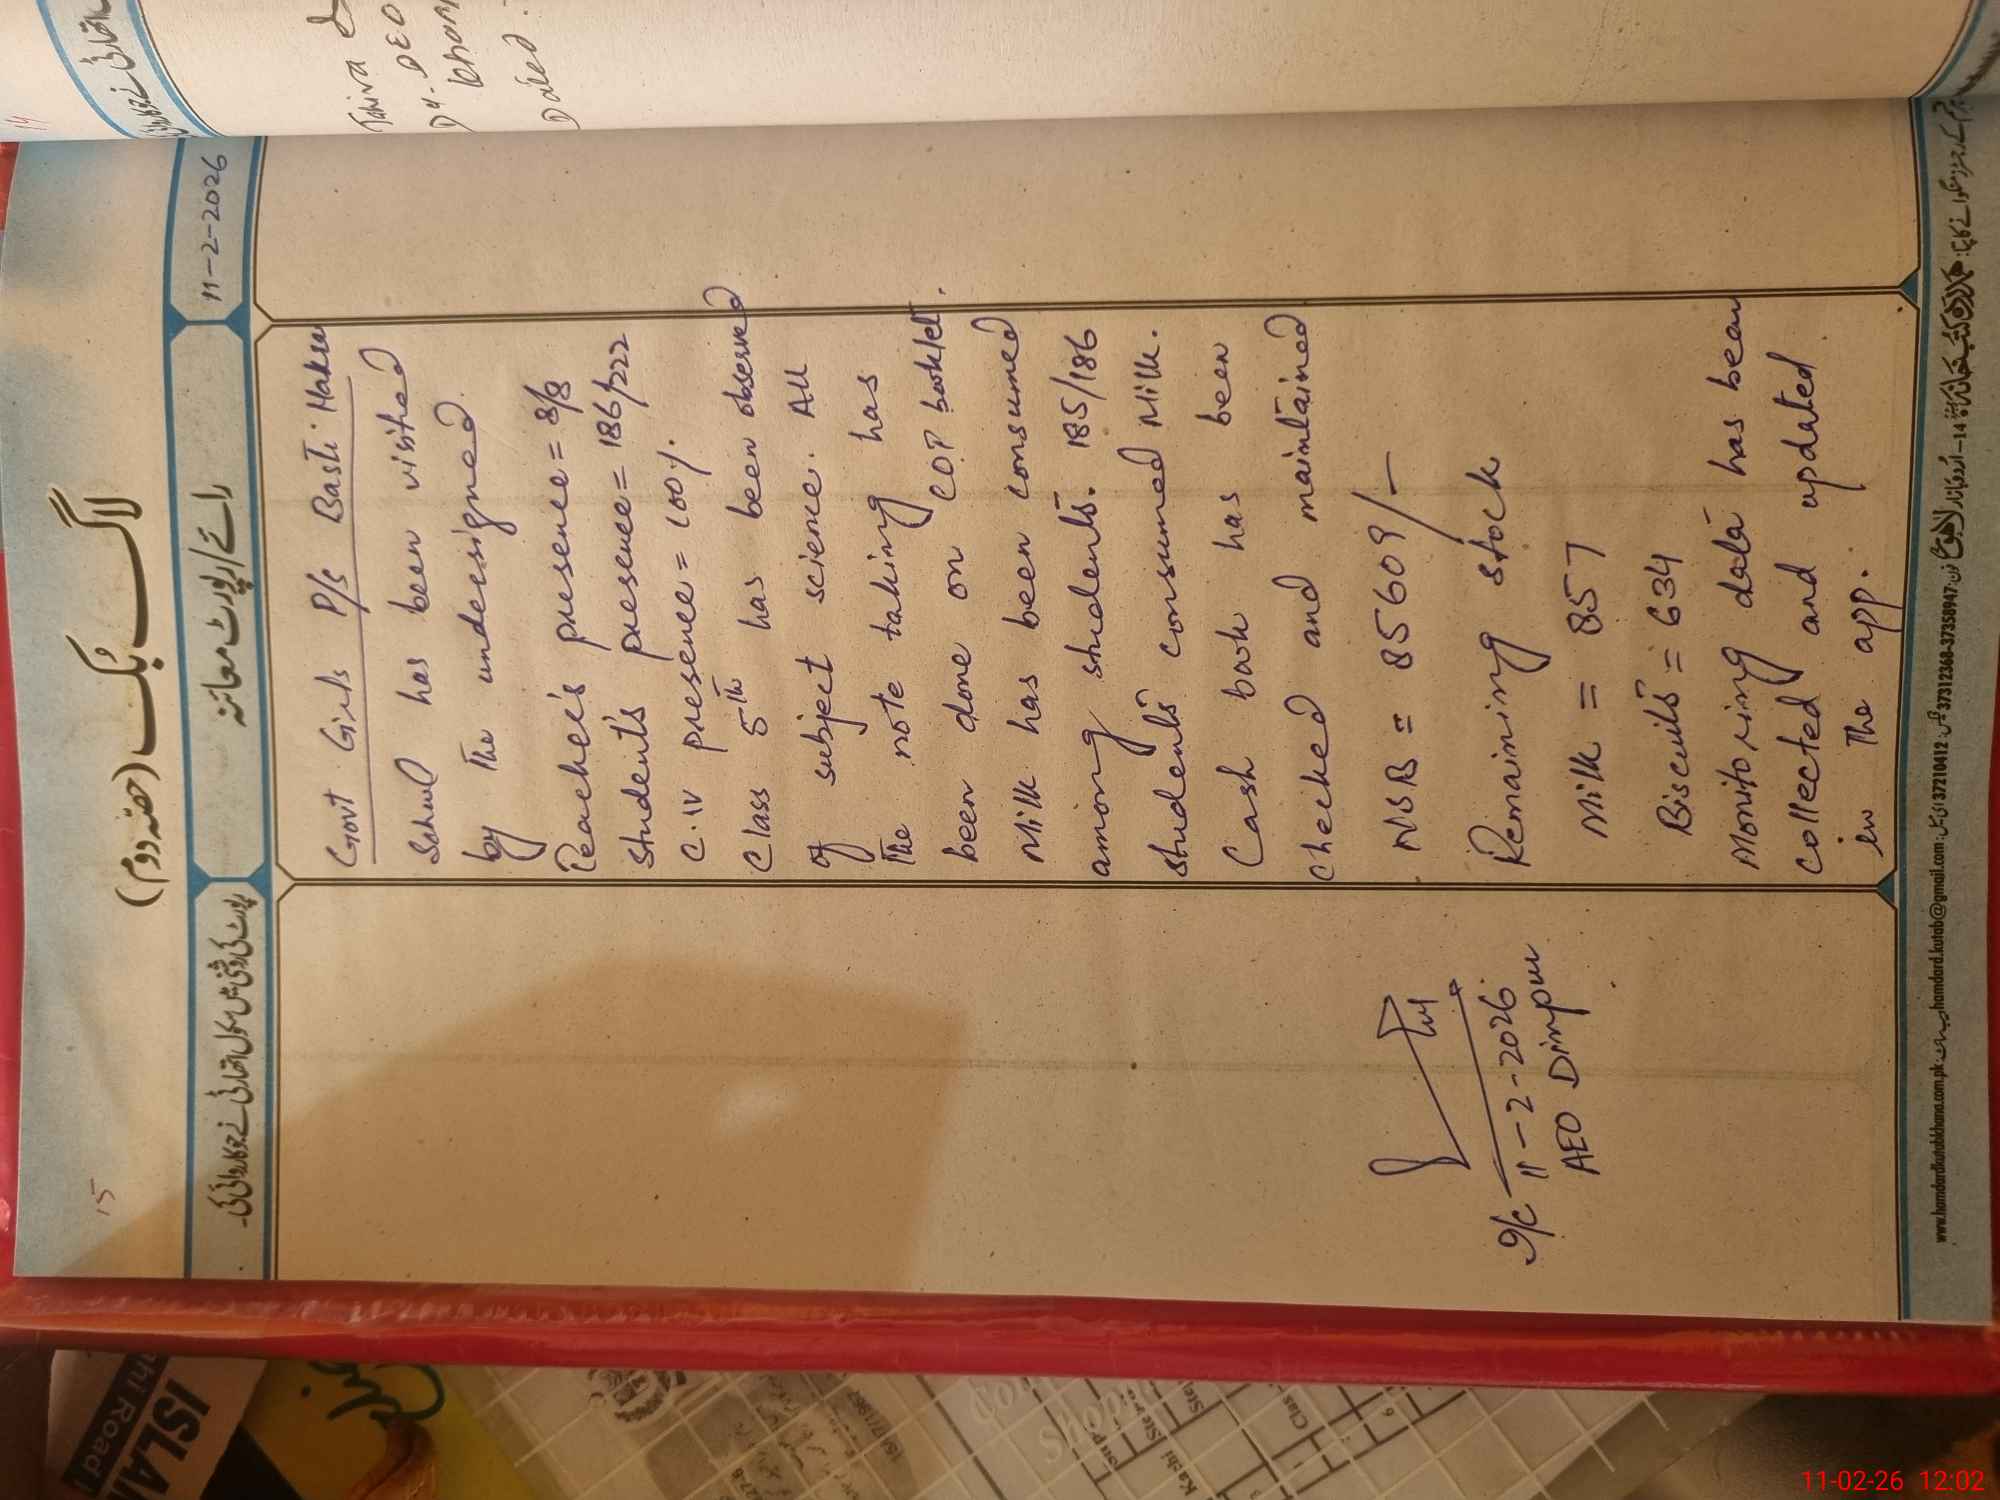 15
لاگ بُک (حصّہ دوم)
11-2-2026
رائے/رپورٹ معائنہ
رپورٹ کی روشنی میں سکول اتھارٹی نے جو کاروائی کی۔
Govt Girls P/S Basti Hakra
School has been visited
by The undersigned.
Teacher's presence = 8/8
Student's presence = 186/222
C.IV presence = 100%.
Class 5th has been observed
of subject science. All
The note taking has
been done on COT booklet.
Milk has been consumed
among students. 185/186
students consumed Milk.
Cash book has been
checked and maintained
NSB = 85609/-
Remaining stock
Milk = 857
Biscuits = 634
Monitoring data has been
collected and updated
in The app.
11-2-2026
AEO Dinpur
www.hamdardkutabkhana.com.pk hamdard.kutab@gmail.com 37210412 37312368-37358947
14
Tahira
Dy. DEO
Khan
Dated
ISLA
hi Road
Kachi
11-02-26 12:02